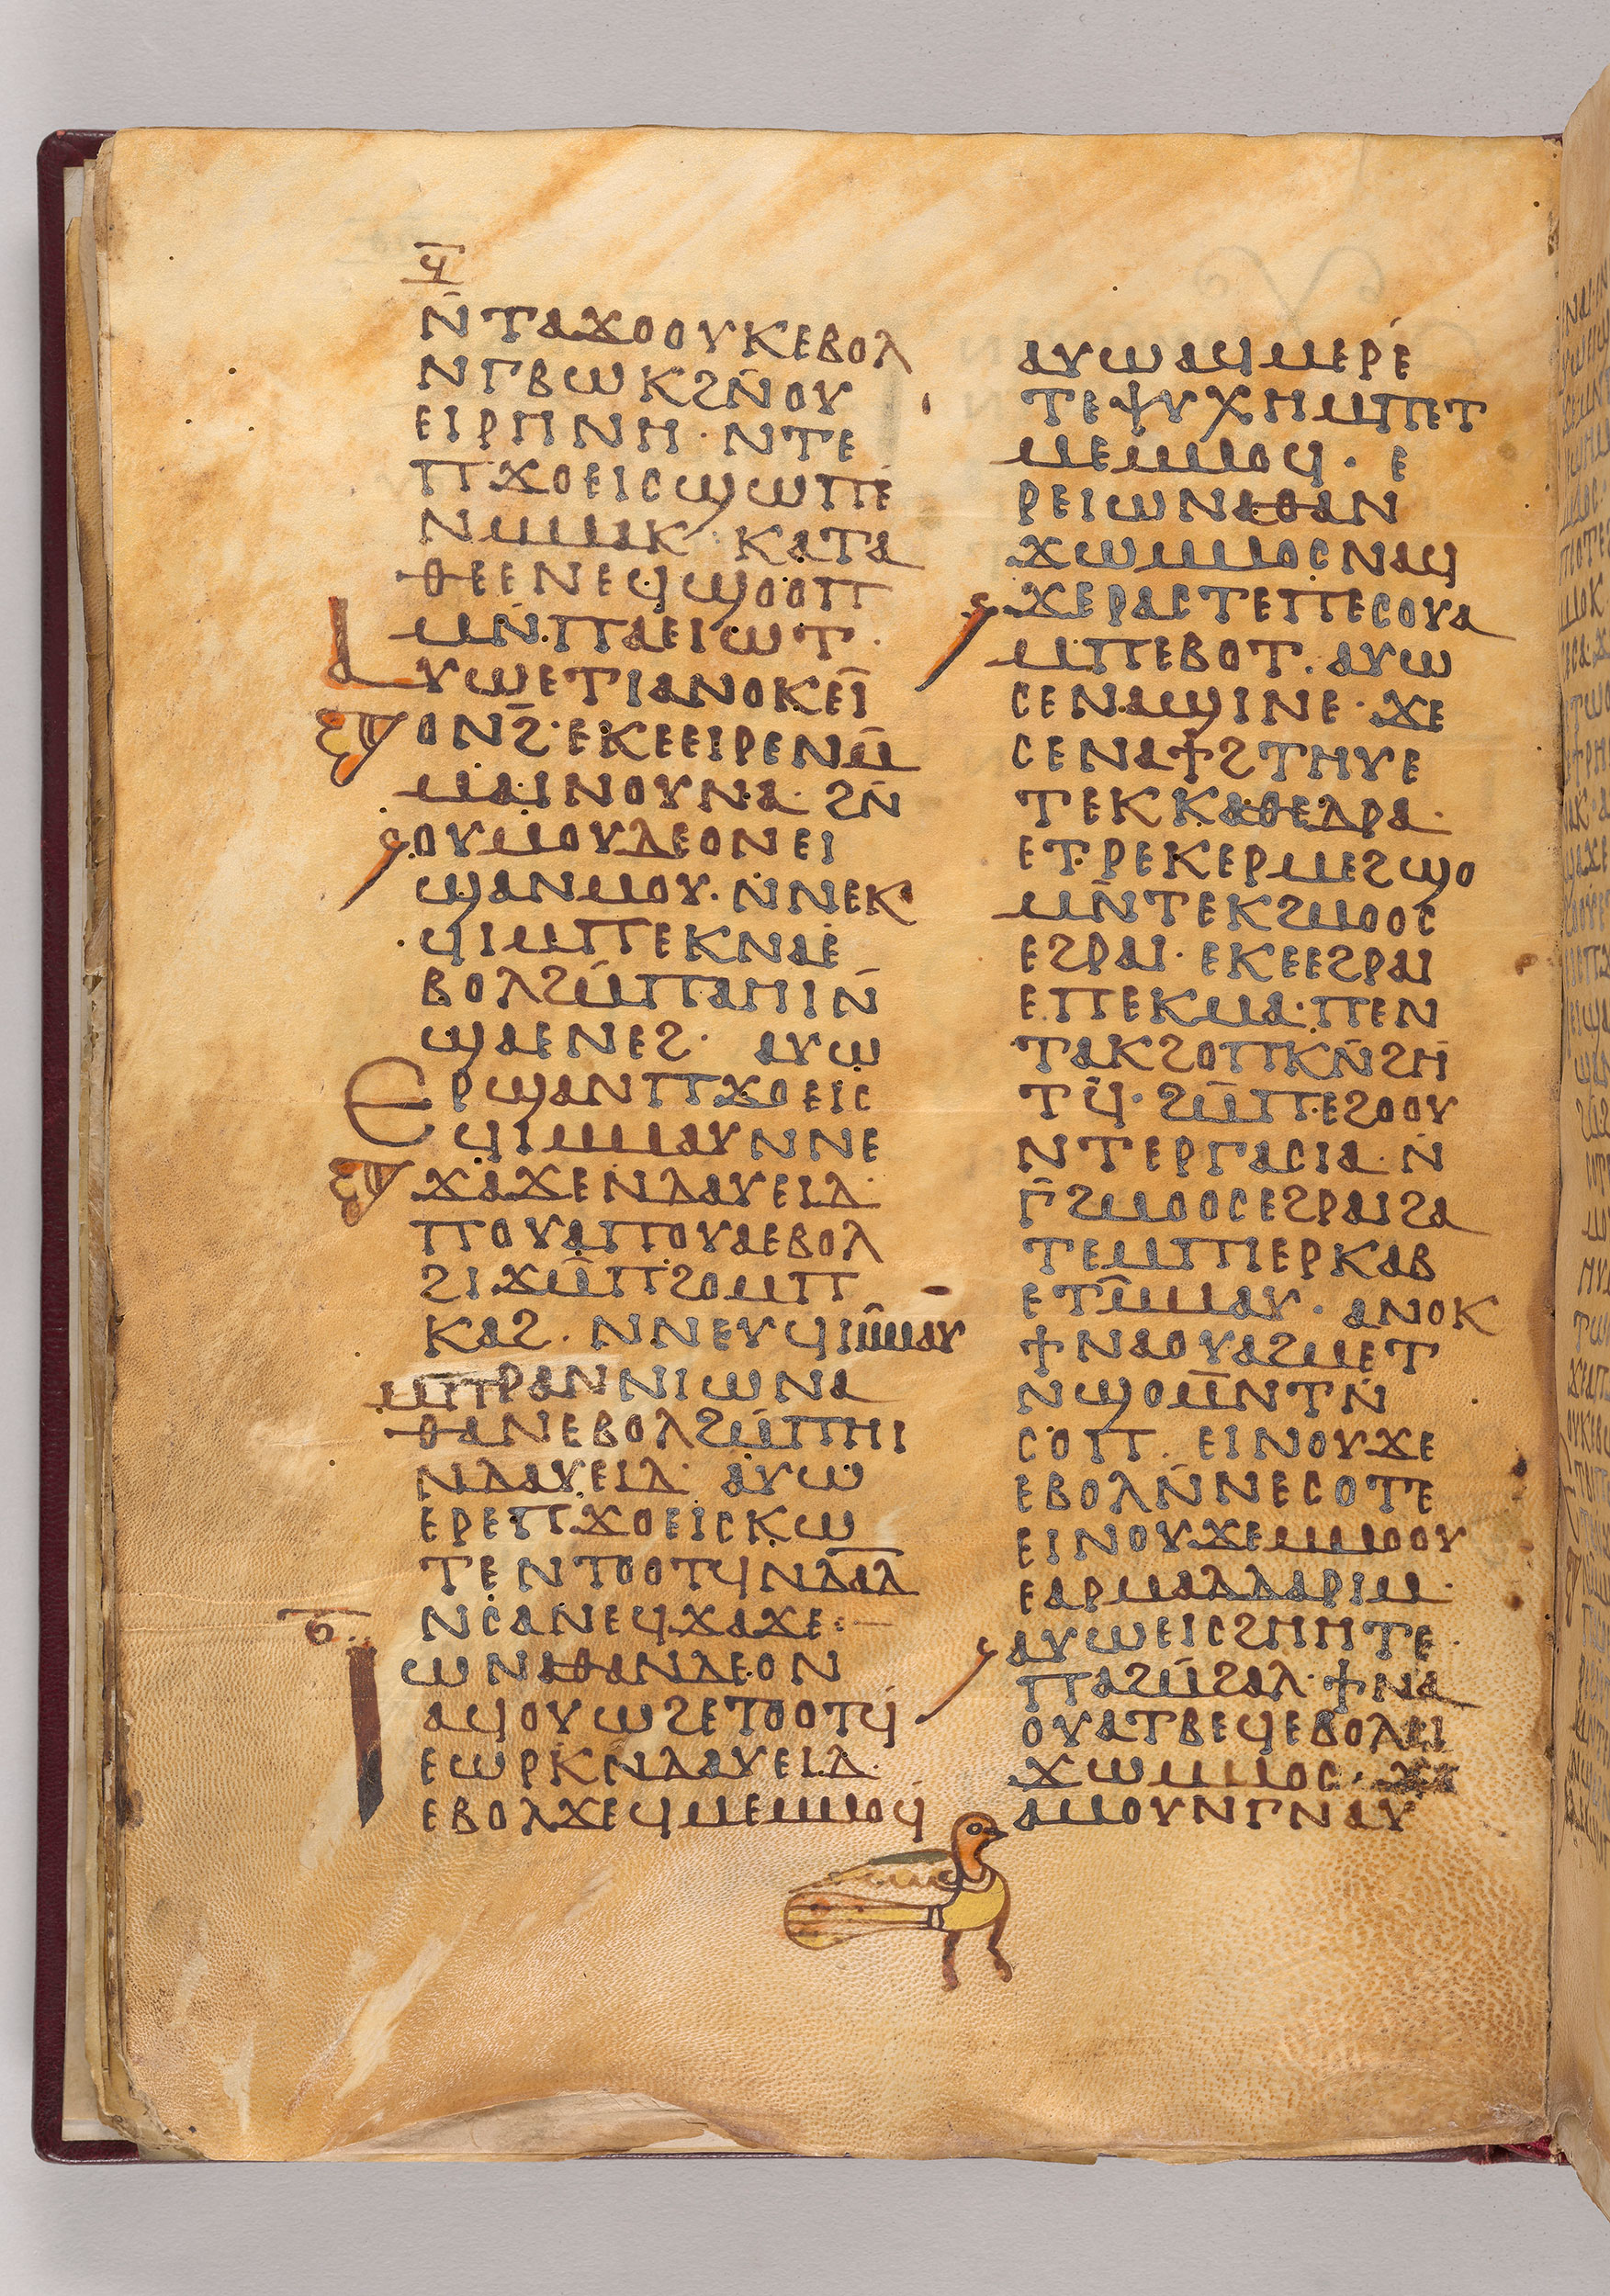 ϥ̅
ⲛ̄ⲧⲁϫⲟⲟⲩⲕⲉⲃⲟⲗ
ⲛⲅⲃⲱⲕϩⲛ̄ⲟⲩ
ⲉⲓⲣⲏⲛⲏ · ⲛⲧⲉ
ⲡϫⲟⲉⲓⲥϣⲱⲡⲉ
ⲛⲙⲙⲁⲕ · ⲕⲁⲧⲁ
ⲑⲉⲉⲛⲉϥϣⲟⲟⲡ
ⲙⲛ̄ⲡⲁⲉⲓⲱⲧ ·
ⲁⲩⲱⲉⲧⲓⲁⲛⲟⲕⲉⲓ̈
ⲟⲛϩ̄ · ⲉⲕⲉⲉⲓⲣⲉⲛⲙ̄
ⲙⲁⲓⲛⲟⲩⲛⲁ · ϩⲛ̄
ⲟⲩⲙⲟⲩⲇⲉⲟⲛⲉⲓ
ϣⲁⲛⲙⲟⲩ · ⲛ̄ⲛⲉⲕ
ϥⲓⲙⲡⲉⲕⲛⲁⲉ
ⲃⲟⲗϩⲙ̄ⲡⲁⲏⲓⲛ̄
ϣⲁⲉⲛⲉϩ · ⲁⲩⲱ
ⲉⲣϣⲁⲛⲡϫⲟⲉⲓⲥ
ϥⲓⲙⲙⲁⲩⲛⲛⲉ
ϫⲁϫⲉⲛⲇⲁⲩⲉⲓⲇ ·
ⲡⲟⲩⲁⲡⲟⲩⲁⲉⲃⲟⲗ
ϩⲓϫⲙ̄ⲡϩⲟⲙⲡ
ⲕⲁϩ · ⲛⲛⲉⲩϥⲓⲙ̄ⲙⲁⲩ
ⲙⲡⲣⲁⲛⲛⲓⲱⲛⲁ
ⲑⲁⲛⲉⲃⲟⲗϩⲙ̄ⲡⲏⲓ
ⲛⲇⲁⲩⲉⲓⲇ · ⲁⲩⲱ
ⲉⲣⲉⲡϫⲟⲉⲓⲥⲕⲱ
ⲧⲉⲛⲧⲟⲟⲧϥⲛⲇⲁ̅ⲇ̅
ⲛⲥⲁⲛⲉϥϫⲁϫⲉ :—
ⲋ̅
ⲓⲱⲛⲁⲑⲁⲛⲇⲉⲟⲛ
ⲁϥⲟⲩⲱϩⲉⲧⲟⲟⲧϥ
ⲉⲱⲣⲕⲛⲇⲁⲩⲉⲓⲇ ·
ⲉⲃⲟⲗϫⲉϥⲙⲉⲙⲙⲟϥ
ⲁⲩⲱⲁϥⲙⲉⲣⲉ
ⲧⲉⲯⲩⲭⲏⲙⲡⲉⲧ
ⲙⲉⲙⲙⲟϥ · ⲉ
ⲣⲉⲓⲱⲛⲁⲑⲁⲛ
ϫⲱⲙⲙⲟⲥⲛⲁϥ
ϫⲉⲣⲁⲥⲧⲉⲡⲉⲥⲟⲩⲁ
ⲙⲡⲉⲃⲟⲧ · ⲁⲩⲱ
ⲥⲉⲛⲁϣⲓⲛⲉ · ϫⲉ
ⲥⲉⲛⲁϯϩⲧⲏⲩⲉ
ⲧⲉⲕⲕⲁⲑⲉⲇⲣⲁ ·
ⲉⲧⲣⲉⲕⲉⲣⲙⲉϩϣⲟ
ⲙⲛ̄ⲧⲉⲕϩⲙⲟⲟⲥ
ⲉϩⲣⲁⲓ · ⲉⲕⲉⲉϩⲣⲁⲓ
ⲉⲡⲉⲕⲙⲁ · ⲡⲉⲛ
ⲧⲁⲕϩⲟⲡⲕⲛ̄ϩⲏ
ⲧϥ̄ · ϩⲙ̄ⲡⲉϩⲟⲟⲩ
ⲛⲧⲉⲣⲅⲁⲥⲓⲁ · ⲛ̄
ⲅ̄ϩⲙⲟⲟⲥⲉϩⲣⲁⲓϩⲁ
ⲧⲉⲙⲡⲓⲉⲣⲕⲁⲃ
ⲉⲧⲙ̄ⲙⲁⲩ · ⲁⲛⲟⲕ
ϯⲛⲁⲟⲩⲁϩⲙⲉⲧ
ⲛϣⲟⲙ̄ⲛⲧⲛ̄
ⲥⲟⲡ · ⲉⲓⲛⲟⲩϫⲉ
ⲉⲃⲟⲗⲛ̄ⲛⲉⲥⲟⲧⲉ
ⲉⲓⲛⲟⲩϫⲉⲙⲙⲟⲟⲩ
ⲉⲁⲣⲙⲁⲇⲇⲁⲣⲓⲙ ·
ⲁⲩⲱⲉⲓⲥϩⲏⲏⲧⲉ ·
ⲡⲁϩⲙ̄ϩⲁⲗ · ϯⲛⲁ
ⲟⲩⲁⲧⲃⲉϥⲉⲃⲟⲗⲉⲓ
ϫⲱⲙⲙⲟⲥ · ϫⲉ
ⲁⲙⲟⲩⲛⲅⲛⲁⲩ